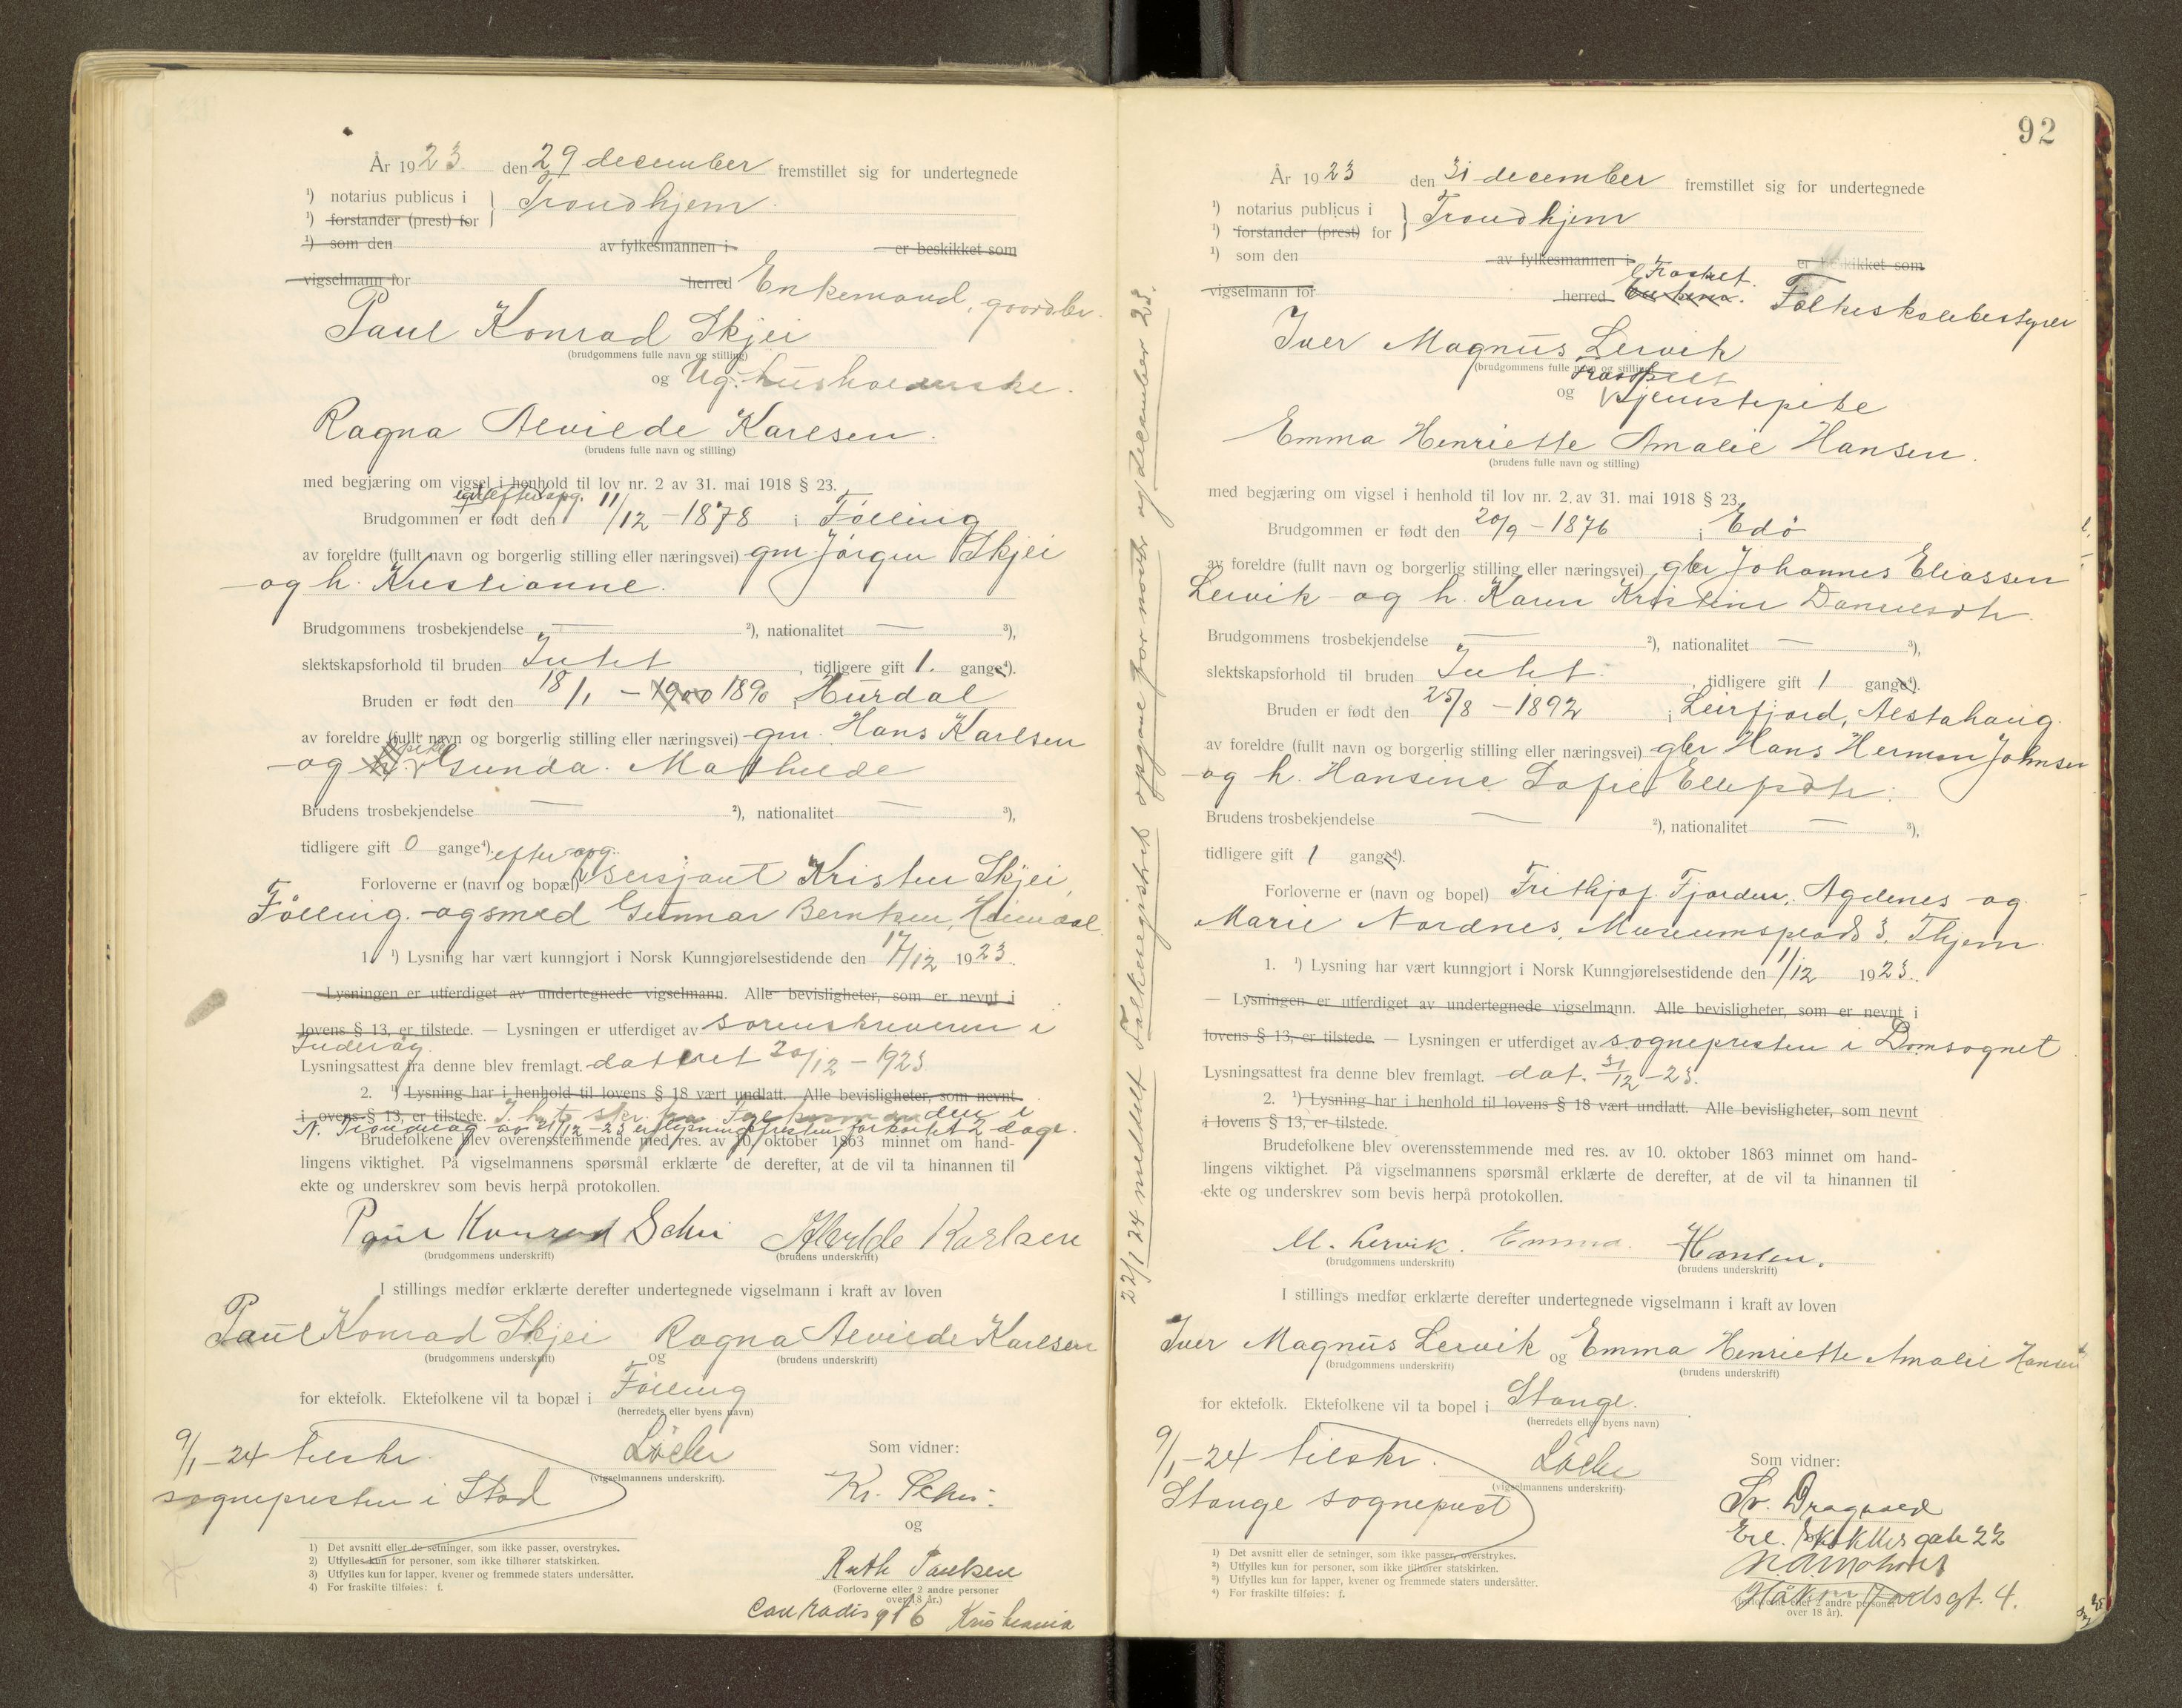 År 1923. den 29 december fremstillet sig for undertegnede
¹) notarius publicus i
¹) forstander (prest) for } Trondhjem.
¹) som den av fylkesmannen i er beskikket som
vigselmann for herred Enkemand, gaardbr.
Paul Konrad Skjei
(brudgommens fulle navn og stilling)
og Ug. husholderske.
Ragna Alvilde Karlsen.
(brudens fulle navn og stilling)
med begjæring om vigsel i henhold til lov nr. 2 av 31. mai 1918 § 23.
efter opg.
Brudgommen er født den 11/12 - 1878 i Følling
av foreldre (fullt navn og borgerlig stilling eller næringsvei) gm. Jørgen Skjei
og h. Kristianne.
Brudgommens trosbekjendelse — ²), nationalitet — ³),
slektskapsforhold til bruden Intet, tidligere gift 1. gange⁴).
Bruden er født den 18/1 - 1900 1890 i Hurdal
av foreldre (fullt navn og borgerlig stilling eller næringsvei) gm. Hans Karlsen
pike
og h. Gunda Mathilde
Brudens trosbekjendelse — ²), nationalitet — ³),
tidligere gift 0 gange⁴). efter opg.
Forloverne er (navn og bopæl) sersjant Kristen Skjei,
Følling. og smed Gunnar Berntsen, Heimdal.
1. ¹) Lysning har vært kunngjort i Norsk Kunngjørelsestidende den 17/12 1923.
Lysningen er utferdiget av undertegnede vigselmann. Alle bevisligheter, som er nevnt i
lovens § 13, er tilstede. — Lysningen er utferdiget av sorenskriveren i
Inderøy.
Lysningsattest fra denne blev fremlagt. datert 20/12 - 1923
2. ¹) Lysning har i henhold til lovens § 18 vært undlatt. Alle bevisligheter, som nevnt
i lovens § 13, er tilstede. I h. t. skr. fra Fylkesmanden i
N. Trøndelag av 21/12 - 23 er lysningsfristen forkortet 2 dage.
Brudefolkene blev overensstemmende med res. av 10. oktober 1863 minnet om hand-
lingens viktighet. På vigselmannens spørsmål erklærte de derefter, at de vil ta hinannen til
ekte og underskrev som bevis herpå protokollen.
Paul Konrad Schei Alvilde Karlsen
(brudgommens underskrift) (brudens underskrift)
I stillings medfør erklærte derefter undertegnede vigselmann i kraft av loven
Paul Konrad Skjei og Ragna Alvilde Karlsen
(brudgommens underskrift) (brudens underskrift)
for ektefolk. Ektefolkene vil ta bopæl i Følling
(herredets eller byens navn)
9/1 - 24 tilskr. Löchen Som vidner:
(vigselmannens underskrift).
sognepresten i Stod Kr. Schei.
og
1) Det avsnitt eller de setninger, som ikke passer, overstrykes.
2) Utfylles kun for personer, som ikke tilhører statskirken.
3) Utfylles kun for lapper, kvener og fremmede staters undersåtter.
4) For fraskilte tilføies: f.
Ruth Paulsen
(Forloverne eller 2 andre personer
over 18 år.)
Conradis gt 6 Kristiania
22/1 24 meddelt Folkeregistret opgave for novbr. og december 23.
92
År 1923 den 31 december fremstillet sig for undertegnede
¹) notarius publicus i
¹) forstander (prest) for } Trondhjem
¹) som den av fylkesmannen i er beskikket som
Fraskilt.
vigselmann for herred Folkeskolebestyrer
Iver Magnus Lervik
(brudgommens fulle navn og stilling)
fraskilt
og tjenestepike
Emma Henriette Amalie Hansen.
(brudens fulle navn og stilling)
med begjæring om vigsel i henhold til lov nr. 2. av 31. mai 1918 § 23.
Brudgommen er født den 20/9 - 1876 i Edø
av foreldre (fullt navn og borgerlig stilling eller næringsvei) gbr Johannes Eliassen
Lervik og h. Karen Kristine Danielsdtr.
Brudgommens trosbekjendelse — ²), nationalitet — ³),
slektskapsforhold til bruden Intet, tidligere gift 1 gange⁴).
Bruden er født den 25/8 - 1892 i Leirfjord, Alstahaug.
av foreldre (fullt navn og borgerlig stilling eller næringsvei) gbr Hans Herman Johnsen
og h. Hansine Sofie Ellefsdtr.
Brudens trosbekjendelse — ²), nationalitet — ³),
tidligere gift 1 gange⁴).
Forloverne er (navn og bopel) Frithjof Fjorden, Agdenes og
Marie Nordnes, Museumsplads 3, Thjem.
1. ¹) Lysning har vært kunngjort i Norsk Kunngjørelsestidende den 1/12 1923.
— Lysningen er utferdiget av undertegnede vigselmann. Alle bevisligheter, som er nevnt i
lovens § 13, er tilstede. — Lysningen er utferdiget av sognepresten i Domsognet
Lysningsattest fra denne blev fremlagt. dat. 31/12 - 23.
2. ¹) Lysning har i henhold til lovens § 18 vært undlatt. Alle bevisligheter, som nevnt
i lovens § 13, er tilstede.
Brudefolkene blev overensstemmende med res. av 10. oktober 1863 minnet om hand-
lingens viktighet. På vigselmannens spørsmål erklærte de derefter, at de vil ta hinannen til
ekte og underskrev som bevis herpå protokollen.
M. Lervik. Emma Hansen.
(brudgommens underskrift) (brudens underskrift)
I stillings medfør erklærte derefter undertegnede vigselmann i kraft av loven
Iver Magnus Lervik og Emma Henriette Amalie Hansen
(brudgommens underskrift) (brudens underskrift)
for ektefolk. Ektefolkene vil ta bopel i Stange.
(herredets eller byens navn)
9/1 - 24 tilskr. Löchen Som vidner:
(vigselmannens underskrift).
Stange sogneprest Sv. Dragvold
Erl. Skakkes gate 22
Håkon Jarlsgt. 4.
(Forloverne eller 2 andre personer
over 18 år).
¹) Det avsnitt eller de setninger, som ikke passer, overstrykes.
²) Utfylles kun for personer, som ikke tilhører statskirken.
³) Utfylles kun for lapper, kvener og fremmede staters undersåtter.
⁴) For fraskilte tilføies: f.